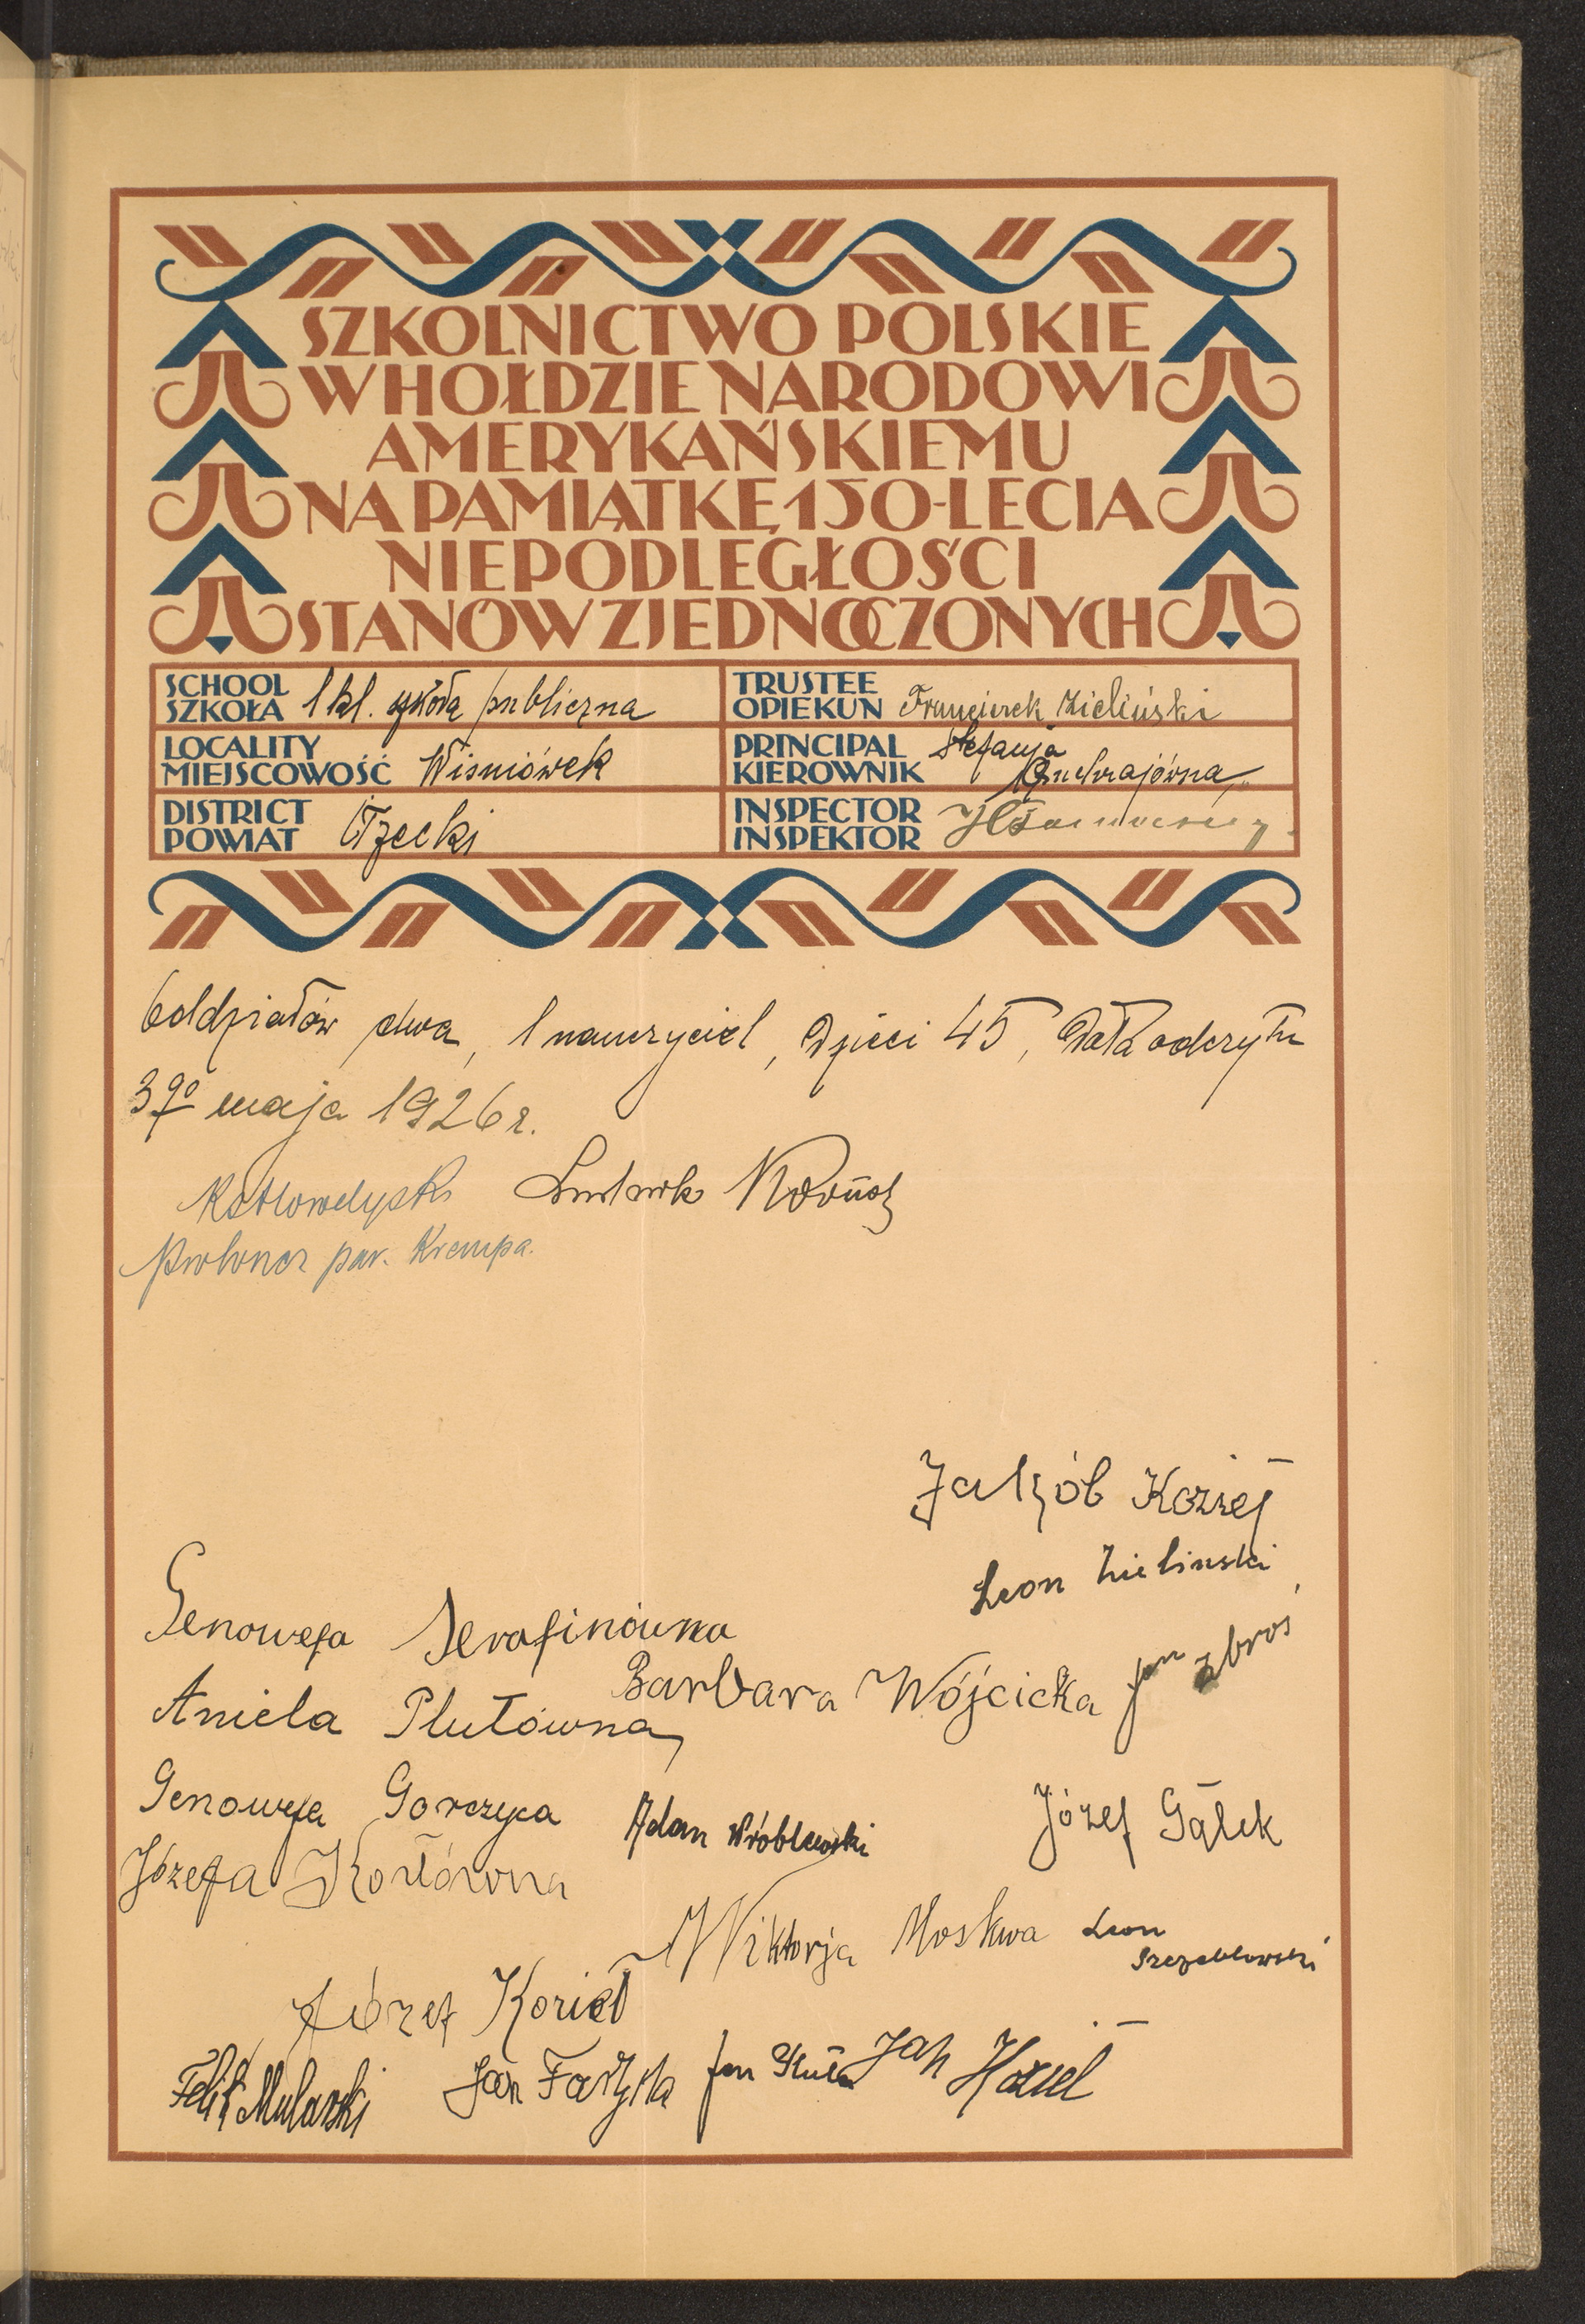 SZKOLNICTWO POLSKIE
W HOŁDZIE NARODOWI
AMERYKAŃSKIEMU
NA PAMIĄTKĘ 150-LECIA
NIEPODLEGŁOŚCI
STANÓW ZJEDNOCZONYCH
SCHOOL
SZKOŁA 1 kl. szkoła publiczna
TRUSTEE
OPIEKUN Franciszek Zieliński
LOCALITY
MIEJSCOWOŚĆ Wisniówek
PRINCIPAL Stefanja
KIEROWNIK
DISTRICT
POWIAT Iłżecki
INSPECTOR
INSPEKTOR
oddziałów dwa, 1 nauczyciel, Dzieci 45, Data odczytu
3go maja 1926 r.
Ludwik
par. Krempa.
Jakób Koziej
Leon Zielinski
Genowefa Serafinówna
Barbara Wójcicka Jan Zbroś
Aniela Plutówna
Genowefa Gorczyca Adam Wróblewski Józef Gałek
Józefa Kozłówna
Wiktorja Moskwa Leon
Józef Kozieł
Felik Mularski Jan Jan Jan Kozieł